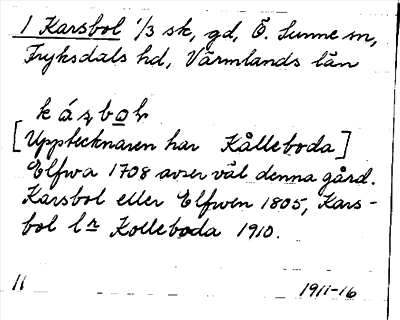 1 Karsbol 1/3 sk, gd, Ö. Sunne sn,
Fryksdals hd, Värmlands län
[Upptecknaren har Kålleboda]
Elfwa 1708 avser väl denna gård.
Karsbol eller Elfwen 1805, Kars-
bol lr Kolleboda 1910.
11 1911-16